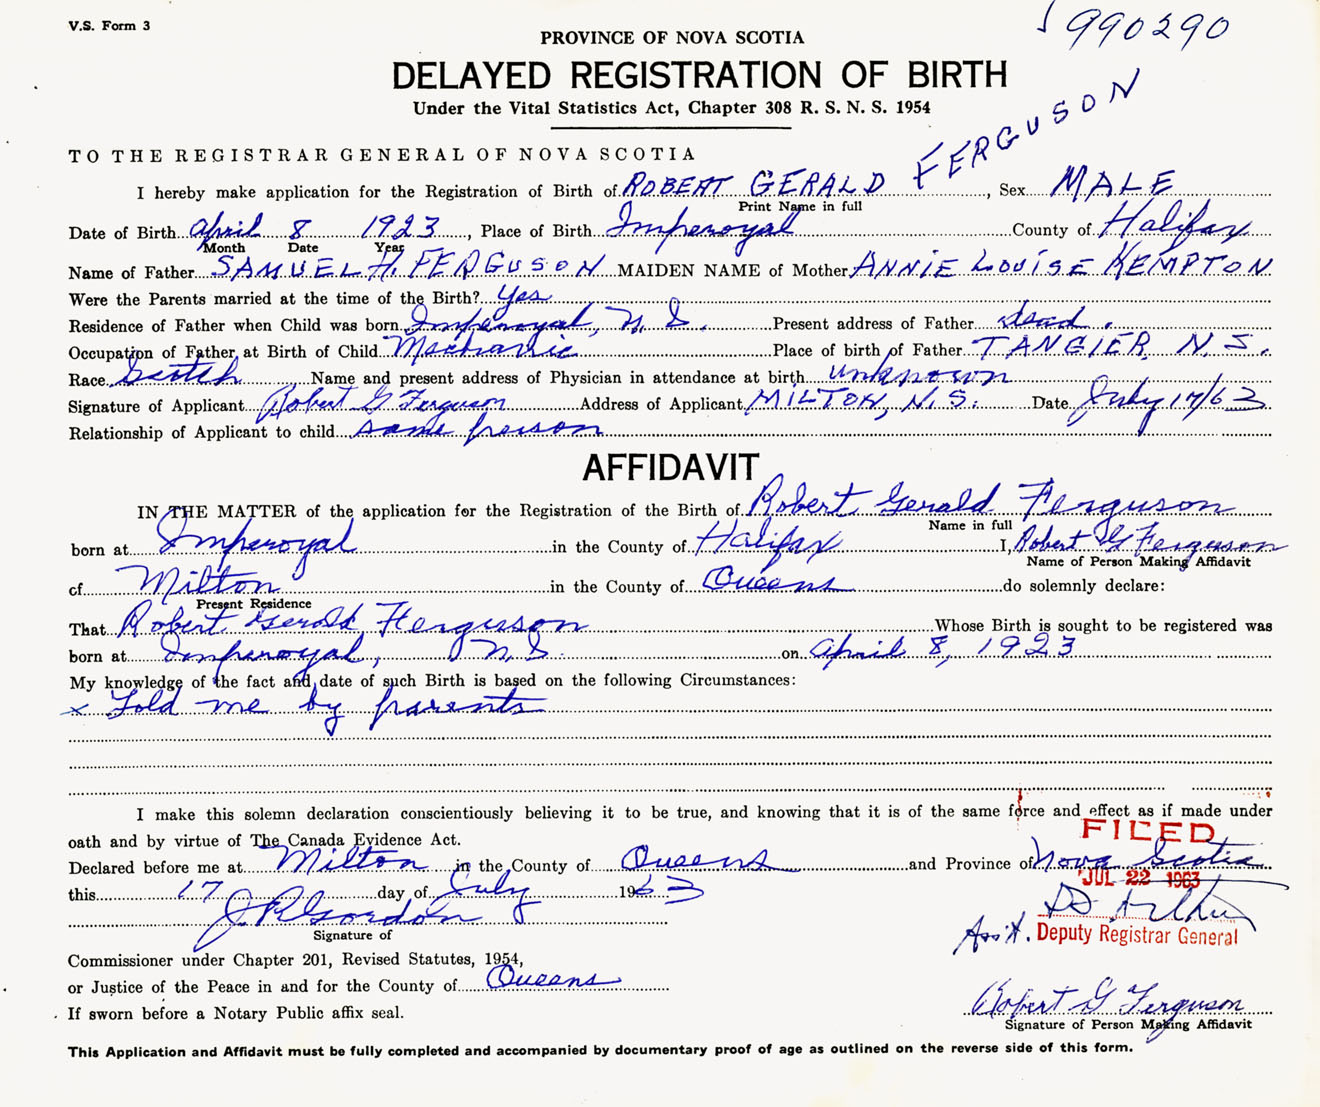 V.S. Form 3
990290
PROVINCE OF NOVA SCOTIA
DELAYED REGISTRATION OF BIRTH
Under the Vital Statistics Act, Chapter 308 R. S. N. S. 1954
TO THE REGISTRAR GENERAL OF NOVA SCOTIA
I hereby make application for the Registration of Birth of ROBERT GERALD FERGUSON, Sex MALE
Print Name in full
Date of Birth April 8 1923, Place of Birth Imperoyal County of Halifax
Month Date Year
Name of Father SAMUEL H. FERGUSON MAIDEN NAME of Mother ANNIE LOUISE KEMPTON
Were the Parents married at the time of the Birth? Yes
Residence of Father when Child was born Imperoyal, N. S. Present address of Father dead.
Occupation of Father at Birth of Child Mechanic Place of birth of Father TANGIER N.S.
Race Scotch Name and present address of Physician in attendance at birth unknown
Signature of Applicant Robert G Ferguson Address of Applicant MILTON, N.S. Date July 17/63
Relationship of Applicant to child same person
AFFIDAVIT
IN THE MATTER of the application for the Registration of the Birth of Robert Gerald Ferguson
Name in full
born at Imperoyal in the County of Halifax I, Robert G Ferguson
Name of Person Making Affidavit
of Milton in the County of Queens do solemnly declare:
Present Residence
That Robert Gerald Ferguson Whose Birth is sought to be registered was
born at Imperoyal, N.S. on April 8, 1923
My knowledge of the fact and date of such Birth is based on the following Circumstances:
x Told me by parents
I make this solemn declaration conscientiously believing it to be true, and knowing that it is of the same force and effect as if made under
oath and by virtue of The Canada Evidence Act.
FILED
Declared before me at Milton in the County of Queens and Province of Nova Scotia
JUL 22 1963
this 17 day of July 1963
J. R. Gordon
Signature of
Ass't. Deputy Registrar General
Commissioner under Chapter 201, Revised Statutes, 1954,
or Justice of the Peace in and for the County of Queens
Robert G Ferguson
If sworn before a Notary Public affix seal.
Signature of Person Making Affidavit
This Application and Affidavit must be fully completed and accompanied by documentary proof of age as outlined on the reverse side of this form.